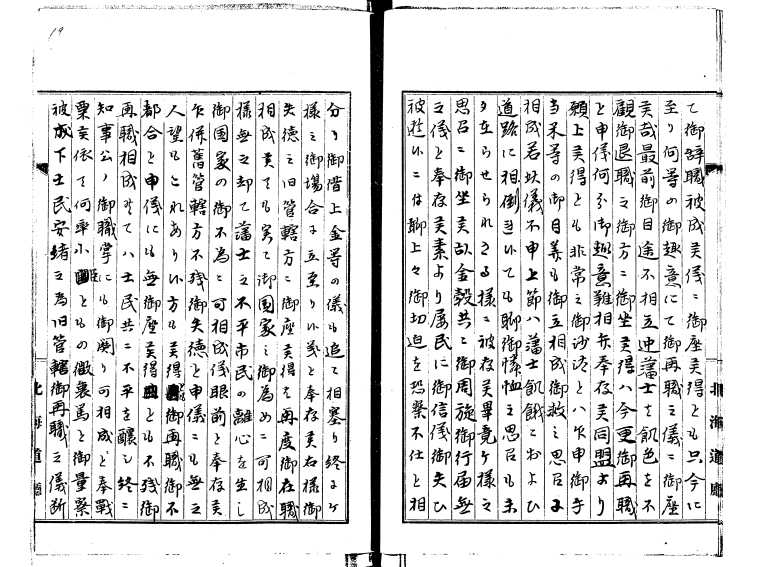 て御辞職被成候儀に御座候得とも只今に
至り何等の御趣意にて御再職之儀に御座
候哉最前御目途不相立中藩士も飢色を不
顧御退職之御方に御坐候得ハ今更御再職
と申儀何分御趣意難相弁奉存候同盟より
願上候得とも非常之御沙汰とハ乍申御手
当米等の御目義も御立相成御救之思召
相成若以儀不申上節ハ藩士飢餓におよひ
道路に相倒れいても聊御憐恤之思召も
不在らせられさる様に被存候畢竟ケ様之
思召に御坐候故金穀共に御周旋御行届無
之儀と奉存候素より屡民に御信儀御失ひ
被遊いニハ聊上々御切迫を恐察不仕と相
分り御借上金等の儀も追て相塞り終にケ
様之御場合に立至りい義と奉存候右様御
失徳之旧管轄方に御座候得は再度御在職
相成候ても実て御国家之御為めに可相成
様無之却て藩士之不平市民の離心を生し
御国家の御不為に可相成儀眼前と奉存候
乍併舊管轄方不残御失徳と申儀にも無之
人望もこれありい方も候得御再職御不
都合と申儀にも無御座候得とも不残御
再職相成候てハ士民共に不平を醸し終に
知事公ノ御職掌にも御関り可相成と奉戦
栗候依て何卒小臣ともの微衷篤と御量察
被成下士民安堵之為旧管轄御再職之儀断
北海道廳
北海道廳
19